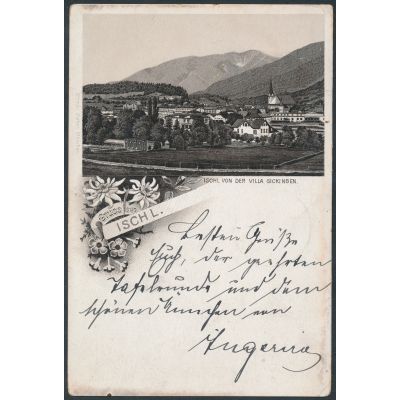 ISCHL VON DER VILLA SICKINGEN.
Gruss aus
ISCHL.
Besten Grüße
Euch, der geehrten
Tafelrunde und dem
schönen von